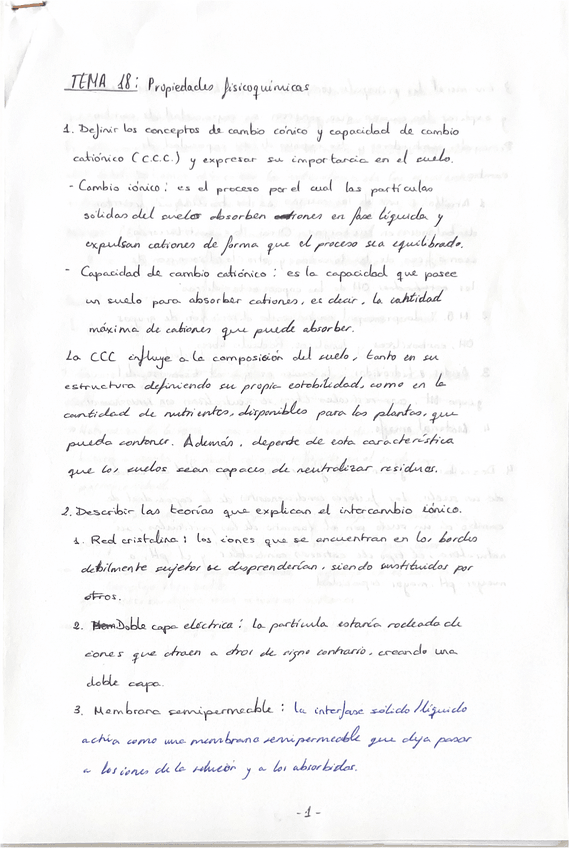 TEMA 18: Propiedades fisicoquímicas
1. Definir los conceptos de cambio iónico y capacidad de cambio
catiónico (C.C.C.) y expresar su importancia en el suelo.
- Cambio iónico: es el proceso por el cual las partículas
sólidas del suelo absorben en fase líquida y
expulsan cationes de forma que el proceso sea equilibrado.
- Capacidad de cambio catiónico: es la capacidad que posee
un suelo para absorber cationes, es decir, la cantidad
máxima de cationes que puede absorber.
La CCC influye a la composición del suelo, tanto en su
estructura definiendo su propia estabilidad, como en la
cantidad de nutrientes, disponibles para las plantas, que
pueda contener. Además, depende de esta característica
que los suelos sean capaces de neutralizar residuos.
2. Describir las teorías que explican el intercambio iónico.
1. Red cristalina: los iones que se encuentran en los bordes
debilmente sujetos se desprenderían, siendo sustituidos por
otros.
2. Doble capa eléctrica: la partícula estaría rodeada de
iones que atraen a otros de signo contrario, creando una
doble capa.
3. Membrana semipermeable: la interfase sólido/líquido
actúa como una membrana semipermeable que deja pasar
a los iones de la solución y a los absorbidos.
-1-